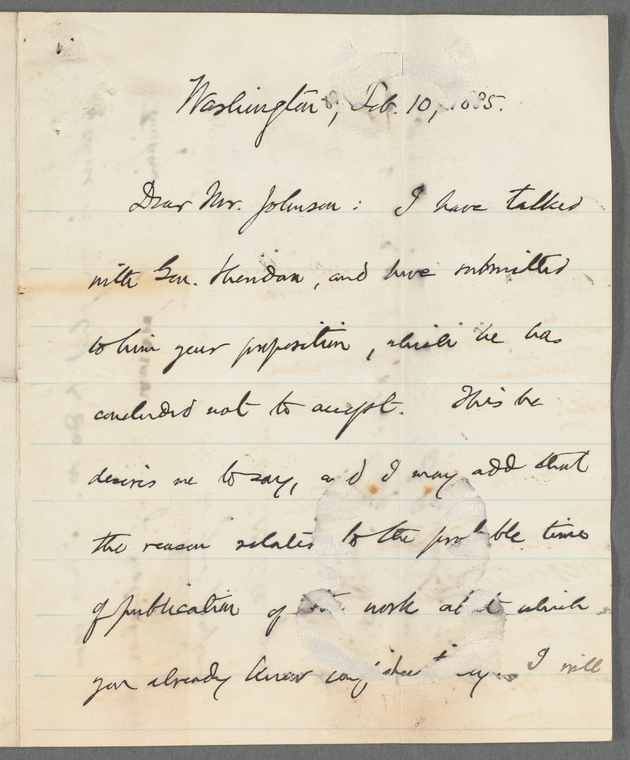 Washington, Feb. 10, 1885.
Dear Mr. Johnson: I have talked
with Gen. Sheridan, and have submitted
to him your proposition, which he has
concluded not to accept. This he
desires me to say, and I may add that
the reason relates to the probable time
of publication of work about which
you already know confidentially. I will